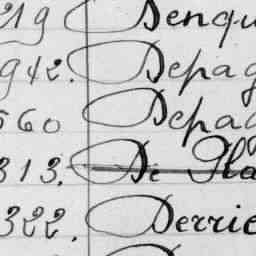 219 Denqu
942. Depag
560 Depag
313. De Pla
322. Derrie